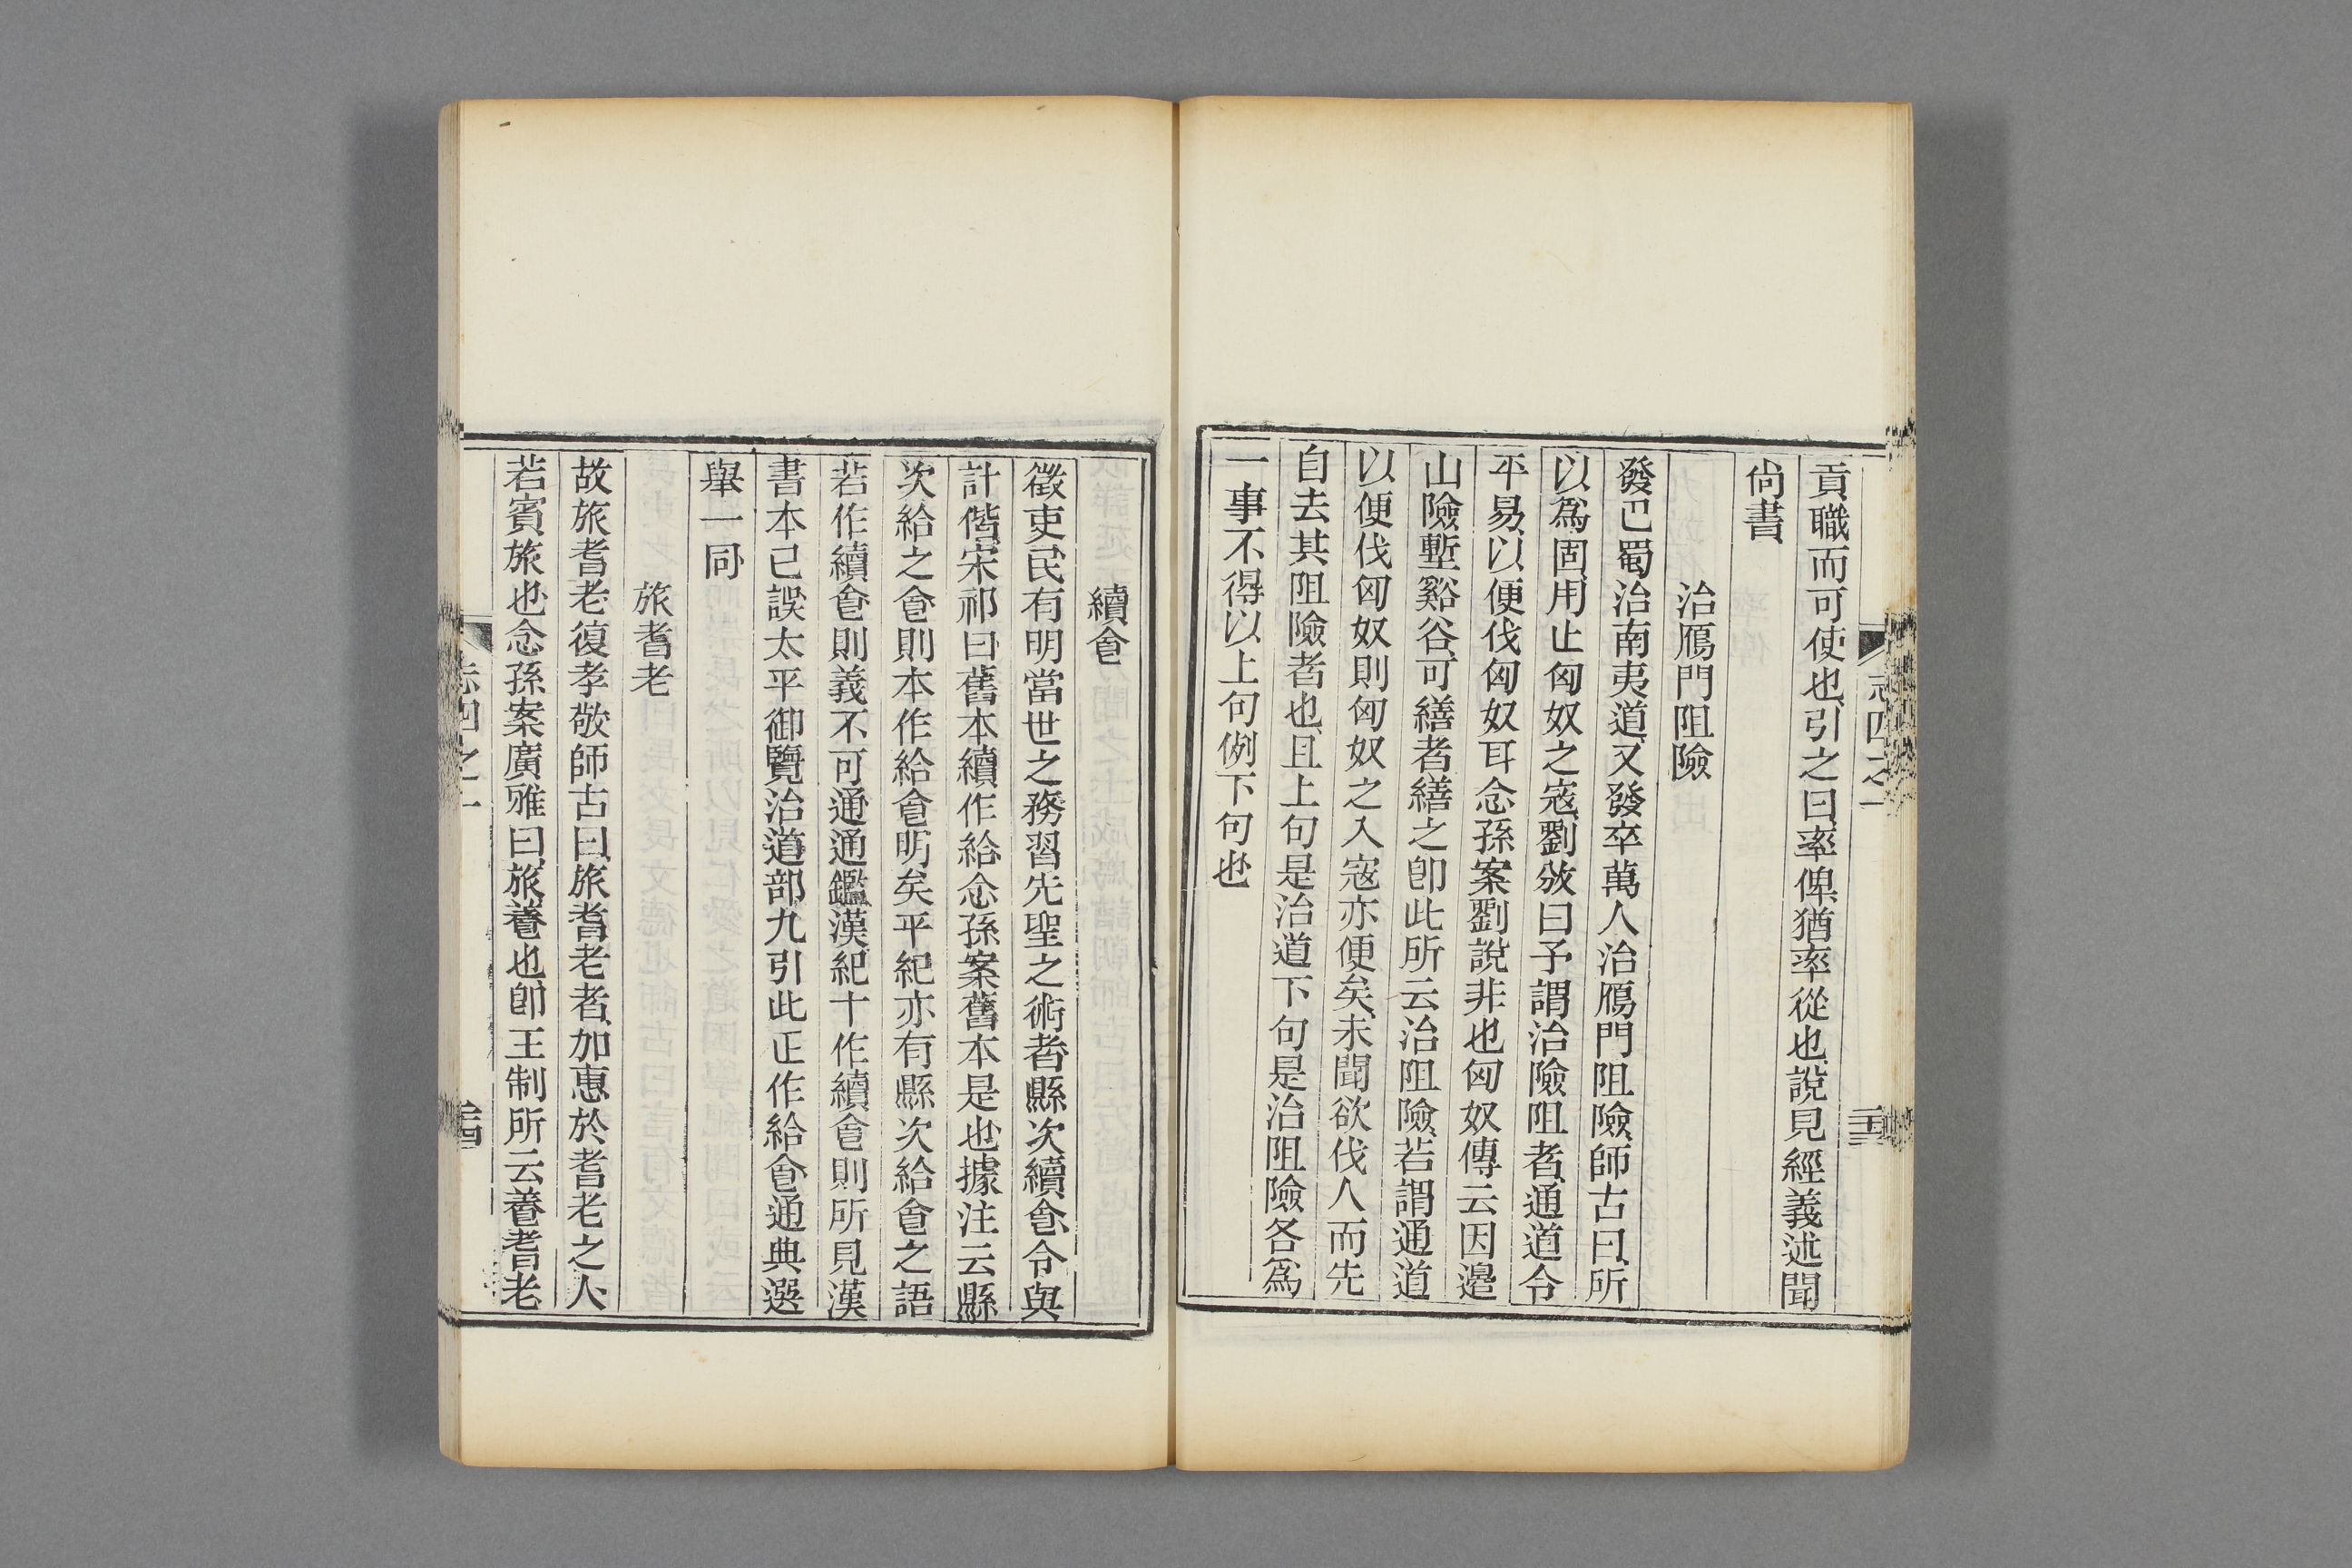 貢職而可使也引之曰率俾猶率從也說見經義述聞
尚書
治鴈門阻險
發巴蜀治南夷道又發卒萬人治鴈門阻險師古曰所
以為固用止匈奴之寇劉攽曰予謂治險阻者通道令
平易以便伐匈奴耳念孫案劉說非也匈奴傳云因邊
山險塹谿谷可繕者繕之即此所云治阻險若謂通道
以便伐匈奴則匈奴之入寇亦便矣未聞欲伐人而先
自去其阻險者也且上句是治道下句是治阻險各為
一事不得以上句例下句也
續食
徵吏民有明當世之務習先聖之術者縣次續食令與
計偕宋祁曰舊本續作給念孫案舊本是也據注云縣
次給之食則本作給食明矣平紀亦有縣次給食之語
若作續食則義不可通通鑑漢紀十作續食則所見漢
書本已誤太平御覽治道部九引此正作給食通典選
舉一同
旅耆老
故旅耆老復孝敬師古曰旅耆老者加惠於耆老之人
若賓旅也念孫案廣雅曰旅養也即王制所云養耆老
志四之一